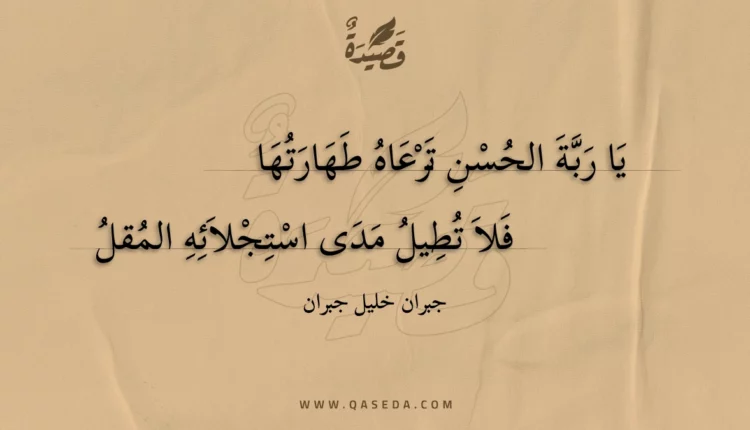 قَصِيدَةٌ
يَا رَبَّةَ الحُسْنِ تَرْعَاهُ طَهَارَتُهَا
فَلاَ تُطِيلُ مَدَى اسْتِجْلاَئِهِ المُقلُ
جبران خليل جبران
WWW.QASEDA.COM